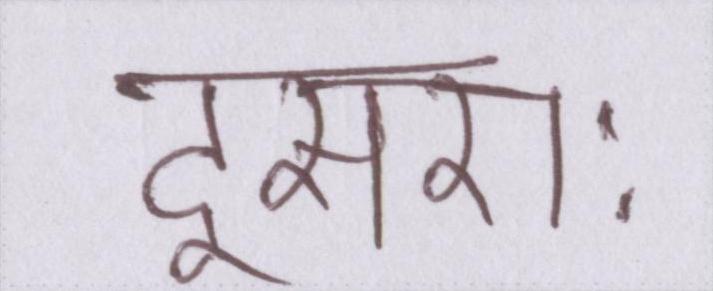 दूसराः